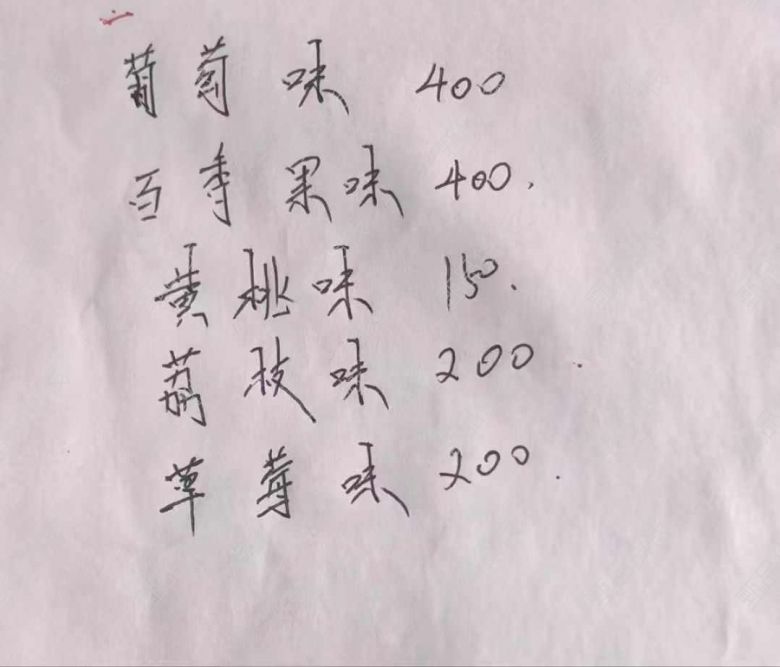 葡萄味 400
百季果味 400.
黄桃味 150.
荔枝味 200.
草莓味 200.